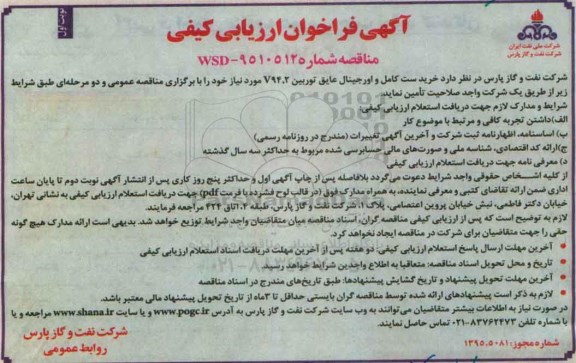 نوبت اول
شرکت ملی نفت ایران
شرکت نفت و گاز پارس
آگهی فراخوان ارزیابی کیفی
مناقصه شماره WSD-9510512
شرکت نفت و گاز پارس در نظر دارد خرید ست کامل و اورجینال عایق توربین V94.2 مورد نیاز خود را با برگزاری مناقصه عمومی و دو مرحله‌ای طبق شرایط
زیر از طریق یک شرکت واجد صلاحیت تأمین نماید.
شرایط و مدارک لازم جهت دریافت استعلام ارزیابی کیفی:
الف) داشتن تجربه کافی و مرتبط با موضوع کار
ب) اساسنامه، اظهارنامه ثبت شرکت و آخرین آگهی تغییرات (مندرج در روزنامه رسمی)
ج) ارائه کد اقتصادی، شناسه ملی و صورت‌های مالی حسابرسی شده مربوط به حداکثر سه سال گذشته
د) معرفی نامه جهت دریافت استعلام ارزیابی کیفی
از کلیه اشخاص حقوقی واجد شرایط دعوت می‌گردد بلافاصله پس از چاپ آگهی اول و حداکثر پنج روز کاری پس از انتشار آگهی نوبت دوم تا پایان ساعت
اداری ضمن ارائه تقاضای کتبی و معرفی نماینده، به همراه مدارک فوق (در قالب لوح فشرده با فرمت pdf) جهت دریافت استعلام ارزیابی کیفی به نشانی تهران،
خیابان دکتر فاطمی، نبش خیابان پروین اعتصامی، پلاک ۱، شرکت نفت و گاز پارس، طبقه ۴، اتاق ۴۲۴ مراجعه فرمایند.
لازم به توضیح است که پس از ارزیابی کیفی مناقصه گران، اسناد مناقصه میان متقاضیان واجد شرایط توزیع خواهد شد. بدیهی است ارائه مدارک هیچ گونه
حقی را جهت متقاضیان برای شرکت در مناقصه ایجاد نخواهد کرد.
• آخرین مهلت ارسال پاسخ استعلام ارزیابی کیفی: دو هفته پس از آخرین مهلت دریافت اسناد استعلام ارزیابی کیفی
• تاریخ و محل تحویل اسناد مناقصه: متعاقبا به اطلاع واجدین شرایط خواهد رسید
• آخرین مهلت تحویل پیشنهاد و تاریخ گشایش پیشنهادها: طبق تاریخ‌های مندرج در اسناد مناقصه
• لازم به ذکر است پیشنهادهای ارائه شده توسط مناقصه گران بایستی حداقل تا ۳ماه از تاریخ تحویل پیشنهاد مالی معتبر باشد.
در صورت نیاز به اطلاعات بیشتر متقاضیان می‌توانند به وب سایت شرکت نفت و گاز پارس به آدرس www.pogc.ir و یا سایت www.shana.ir مراجعه و یا
با شماره تلفن ۸۳۷۶۲۴۷۳-۰۲۱ تماس حاصل نمایند.
شماره مجوز: ۱۳۹۵.۵۰۸۱
شرکت نفت و گاز پارس
روابط عمومی